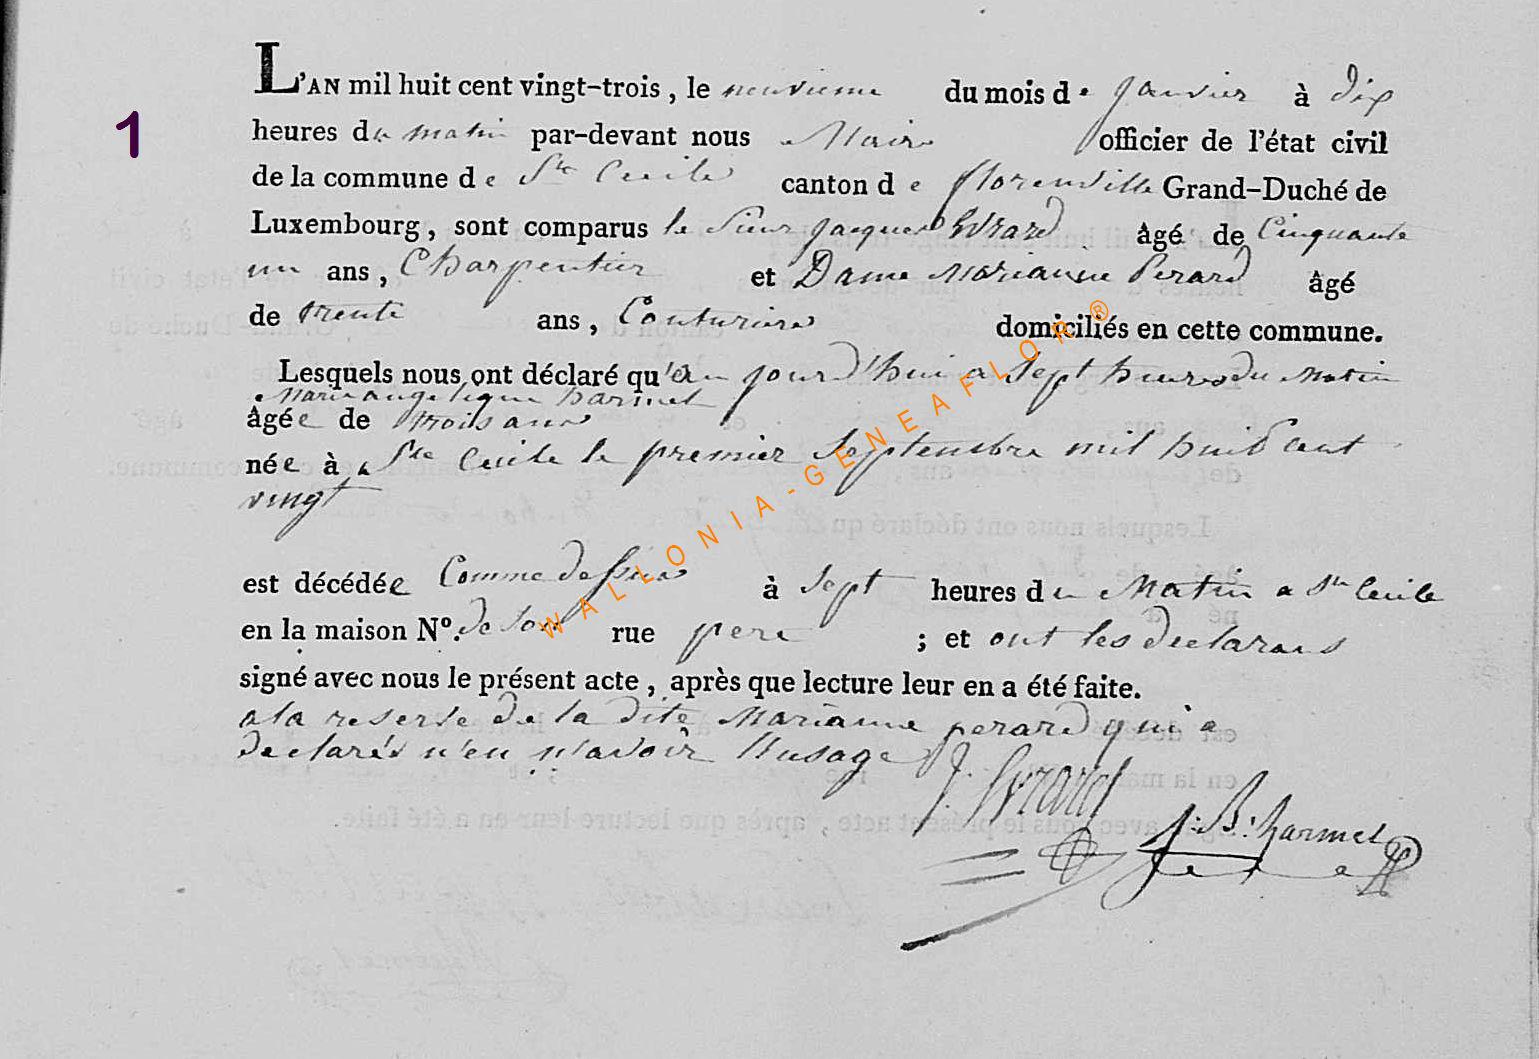 1
L'AN mil huit cent vingt-trois, le neuvieme du mois de janvier à dix
heures du matin par-devant nous Maire officier de l'état civil
de la commune de Ste Cecile canton de florenville Grand-Duché de
Luxembourg, sont comparus le Sieur jacques Evrard âgé de Cinquante
un ans, Charpentier et Dame Marianne Perard âgé
de trente ans, Couturiere domiciliés en cette commune.
Lesquels nous ont déclaré qu'au jour d'hui a Sept heures du Matin
Marie angelique harmel
âgée de trois ans
née à a Ste Cecile le premier Septembre mil huit Cent
vingt
est décédée Comme dessus à Sept heures du Matin a Ste Cecile
en la maison N°. de son rue pere ; et ont les declarans
signé avec nous le présent acte, après que lecture leur en a été faite.
a la reserve de la dite Marianne perard qui a
declarés n'en n'avoir l'usage
J. Evrard
J: B: harmel
WALLONIA-GENEAFLOR ®